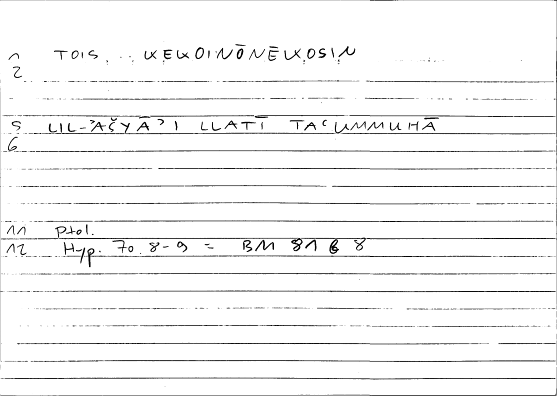 1 TOIS . .. KEKOINŌNĒKOSIN
2
5 LIL-ʾAŠYĀʾI LLATĪ TAʿUMMUHĀ
6
11 Ptol.
12 Hyp. 70. 8-9 = BM 81 b 8